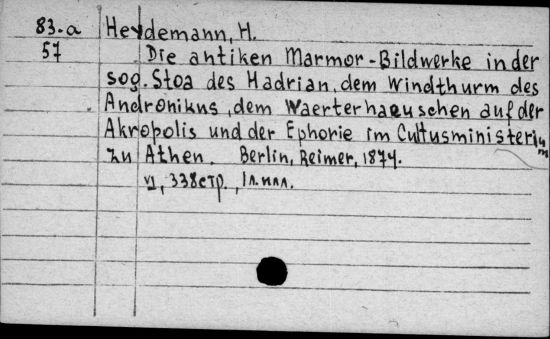 83-a Heydemann, H.
57 Die antiken Marmor-Bildwerke in der
sog. Stoa des Hadrian, dem Windthurm des
Andronikus, dem Waerterhaeuschen auf der
Akropolis und der Ephorie im Cultusministerium
zu Athen. Berlin, Reimer, 1874.
VI, 338 стр., 1 л. илл.